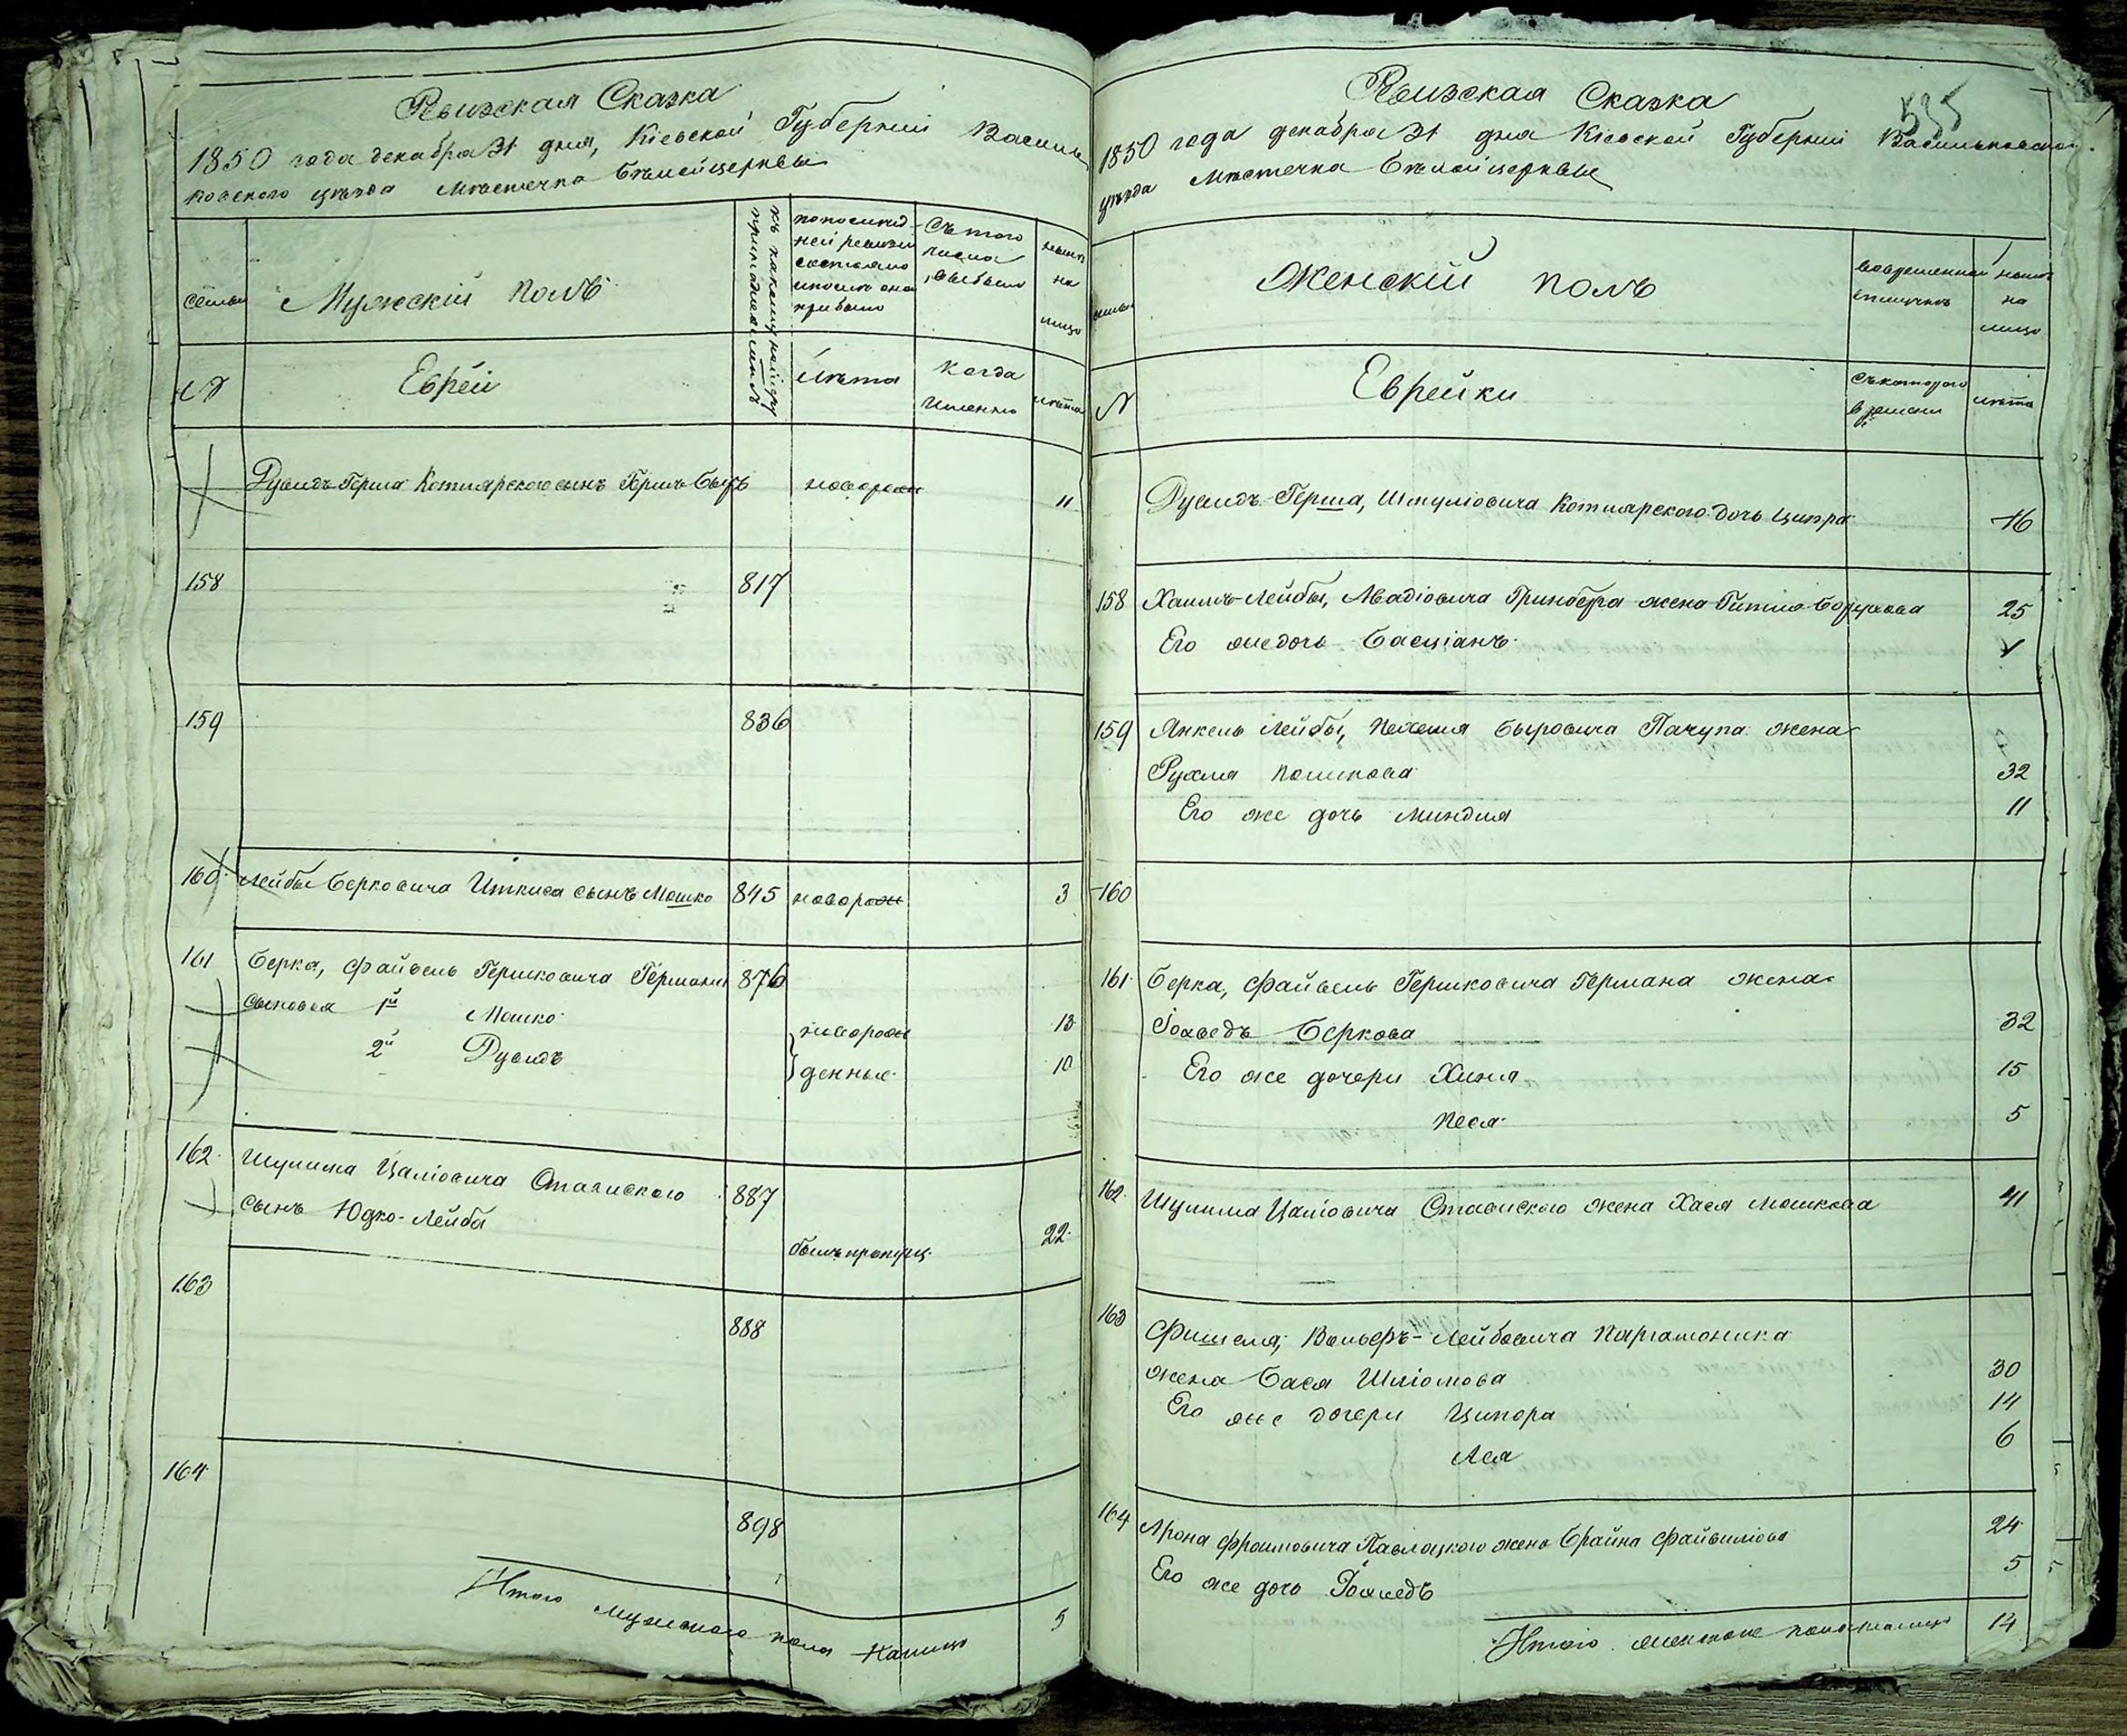 Ревизская Сказка
1850 года декабря 31 дня, Кіевской Губерніи Василь
ковского уѣзда Мѣстечка Бѣлойцерквы
семьи
Мужскій полъ
къ какому кагалу
принадлежитъ
по послѣд
ней ревизіи
состояло
и после оной
прибыло
Съ того
числа
выбыло
нынѣ
на
лицо
№
Еврей
Лѣта
Когда
Именно
лѣта
Дувидъ-Герша Котлярского сынъ Гершъ-Беръ новорож 11
158 817
159 836
160 Лейбы Берковича Иткиса сынъ Мошко 845 новорож 3
161 Берка, Файвель Гершковича Германа 876
сыновья 1й Мошко новорож 13
2й Дувидъ денные 10
162 Шулима Цаліовича Ставиского 887
сынъ Юдко-Лейба былъ пропущ. 22
163
888
164
898
Итого мужского пола налицо 5
Ревизская Сказка
535
1850 года декабря 31 дня Кіевской Губерніи Васильковского
уѣзда Мѣстечка Бѣлойцерквы
семьи
Женскій полъ
во временной
отлучкѣ
нынѣ
на
лицо
№
Еврейки
Съ которого
времени
лѣта
Дувидъ-Герша, Шмуліовича Котлярского дочь Ципра 16
158 Хаимъ-Лейбы, Авадіовича Гринберга жена Гитля Борухова 25
Его же дочь Басціанъ 1
159 Янкель Лейбы, Быровича Пачупа жена
Рухля 32
Его же дочь Миндля 11
160
161 Берка, Файвель Гершковича Германа жена
Іохведъ Беркова 32
Его же дочери Хиня 15
Песя 5
162 Шулима Цаліовича Ставиского жена Хася Мошкова 41
163 Фишеля, Вольфъ-Лейбовича
жена Бася Шліомова 30
Его же дочери Ципора 14
Ася 6
164 Арона Фроимовича Паволоцкого жена Брайна Файвиліова 24
Его же дочь Іохведъ 5
Итого женского пола налицо 14